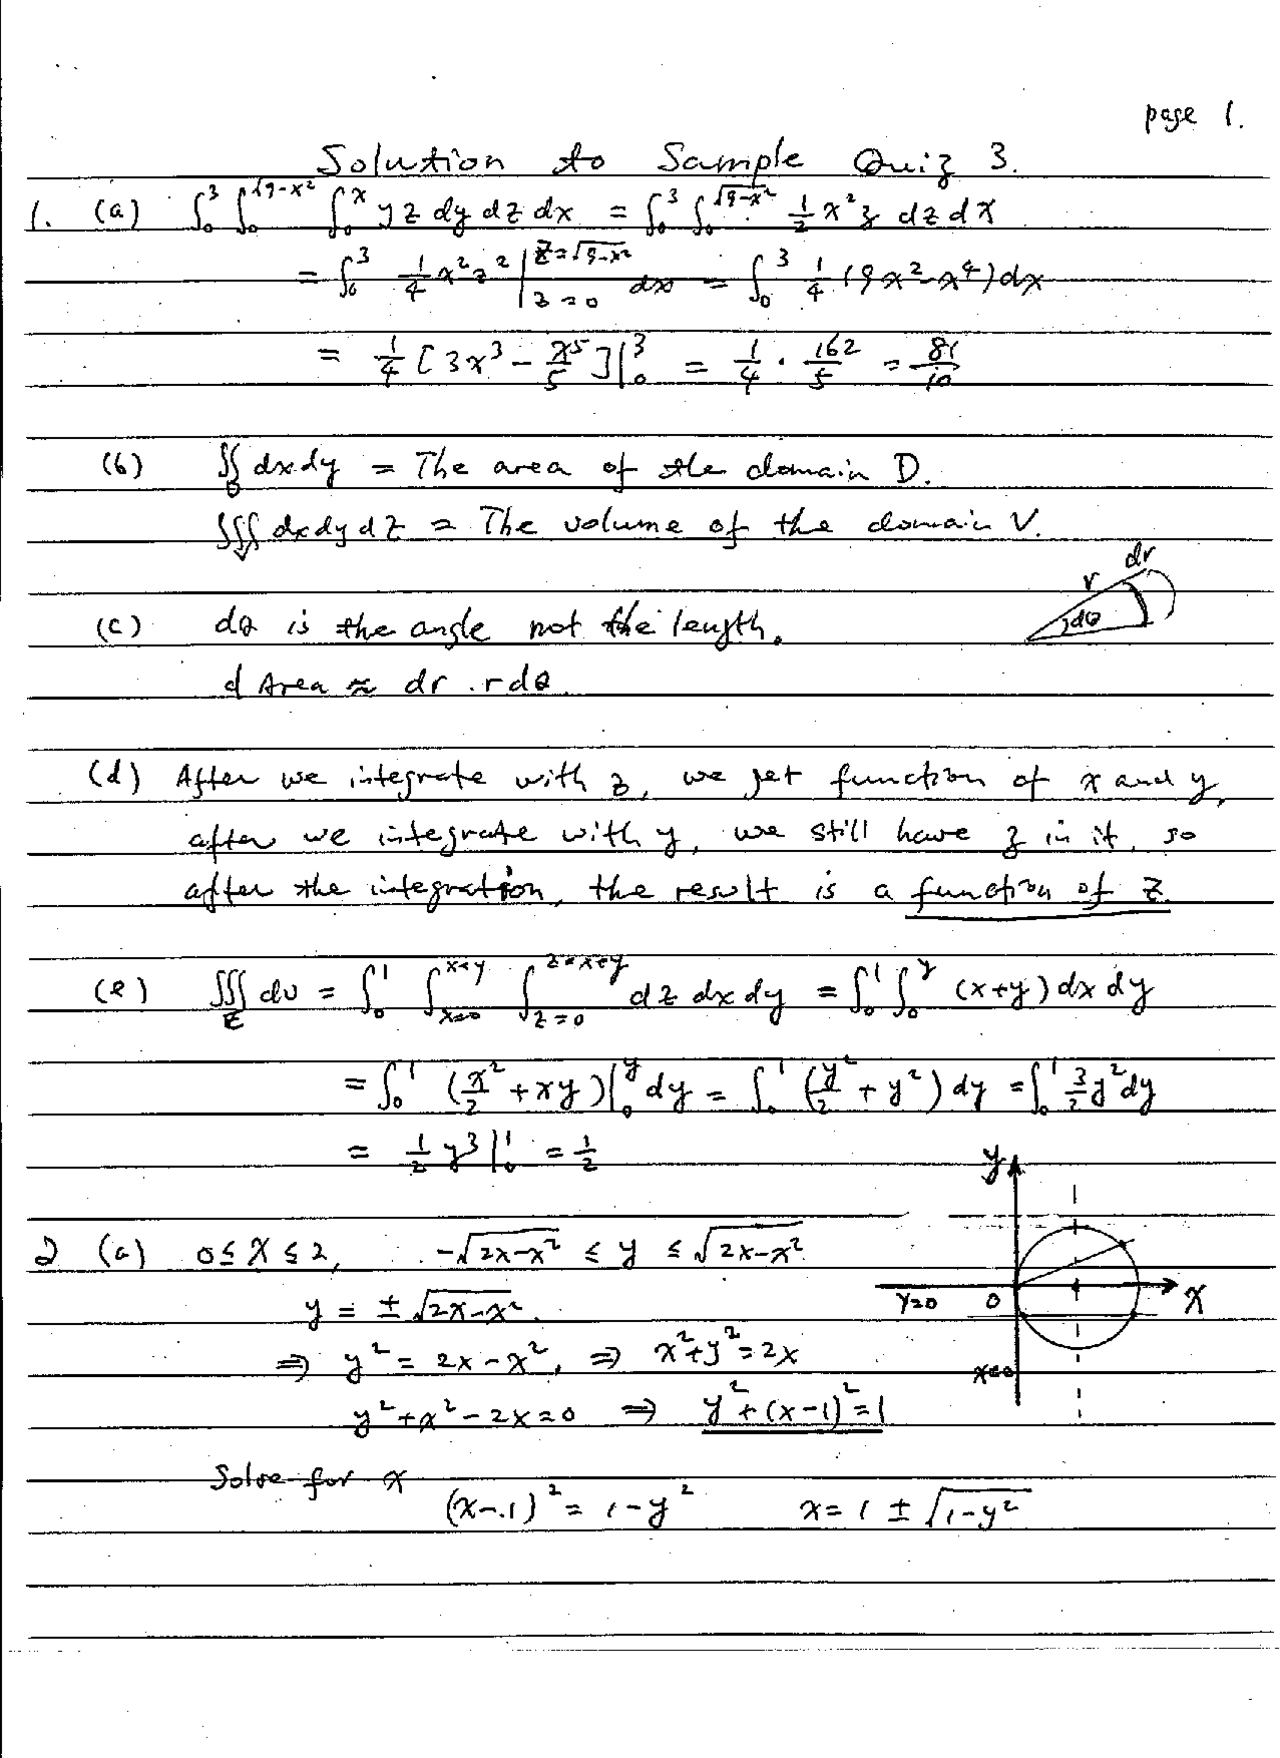 page 1.
Solution to Sample Quiz 3.
1. (a) ∫₀³ ∫₀^√(9-x²) ∫₀ˣ yz dy dz dx = ∫₀³ ∫₀^√(9-x²) ½ x² z dz dx
= ∫₀³ ¼ x² z² |_{z=0}^{z=√(9-x²)} dx = ∫₀³ ¼ (9x² - x⁴) dx
= ¼ [3x³ - x⁵/5]|₀³ = ¼ · 162/5 = 81/10
(b) ∬_D dxdy = The area of the domain D.
∭_V dxdydz = The volume of the domain V.
dr
r
(c) dθ is the angle not the length.
dθ
d Area ≈ dr . r dθ
(d) After we integrate with z, we get function of x and y,
after we integrate with y, we still have z in it, so
after the integration, the result is a function of z
(e) ∭_E dv = ∫₀¹ ∫_{x=0}^{x=y} ∫_{z=0}^{z=x+y} dz dx dy = ∫₀¹ ∫₀^y (x+y) dx dy
= ∫₀¹ (x²/2 + xy)|₀^y dy = ∫₀¹ (y²/2 + y²) dy = ∫₀¹ 3/2 y² dy
= ½ y³|₀¹ = ½
y
2 (a) 0 ≤ x ≤ 2, -√(2x-x²) ≤ y ≤ √(2x-x²)
y=0 0 x
y = ± √(2x-x²).
⇒ y² = 2x - x², ⇒ x² + y² = 2x
x=0
y² + x² - 2x = 0 ⇒ y² + (x-1)² = 1
Solve for x
(x-1)² = 1 - y² x = 1 ± √(1-y²)